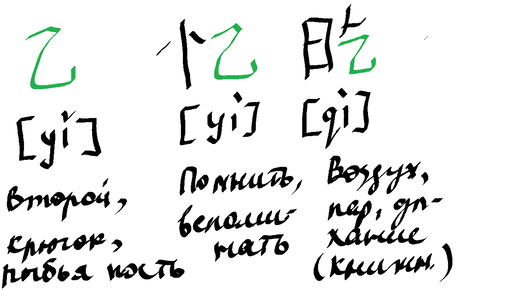 乙
[yi]
Второй,
крючок,
рыбья кость
忆
[yi]
Помнить,
вспоми-
нать
[qi]
Воздух,
пар, ды-
хание
(книжн.)